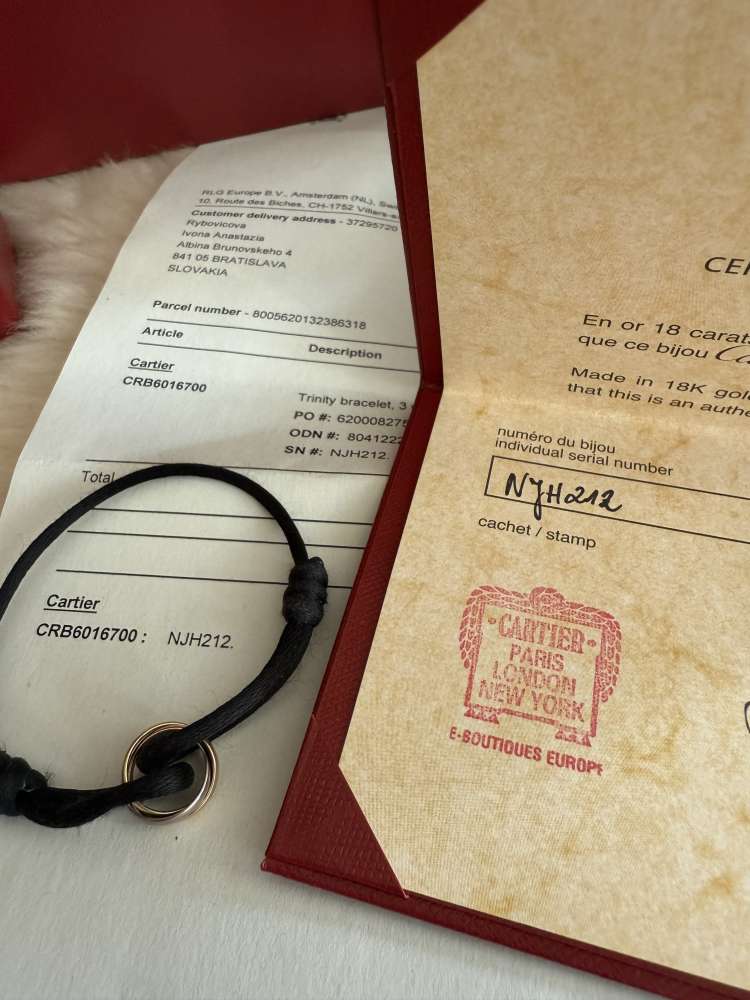 RLG Europe B.V., Amsterdam (NL),
10, Route des Biches, CH-1752
Customer delivery address - 37295720
Rybovicova
Ivona Anastazia
Albina Brunovskeho 4
841 05 BRATISLAVA
SLOVAKIA
Parcel number - 8005620132386318
Article Description
Cartier
CRB6016700
Trinity bracelet, 3
PO #:
ODN #: 8041222
SN #: NJH212.
Total
Cartier
CRB6016700 : NJH212.
En or 18 carats
que ce bijou
Made in 18K gold
that this is an
numéro du bijou
individual serial number
NJH212
cachet / stamp
CARTIER
PARIS
LONDON
NEW YORK
E-BOUTIQUES EUROPE